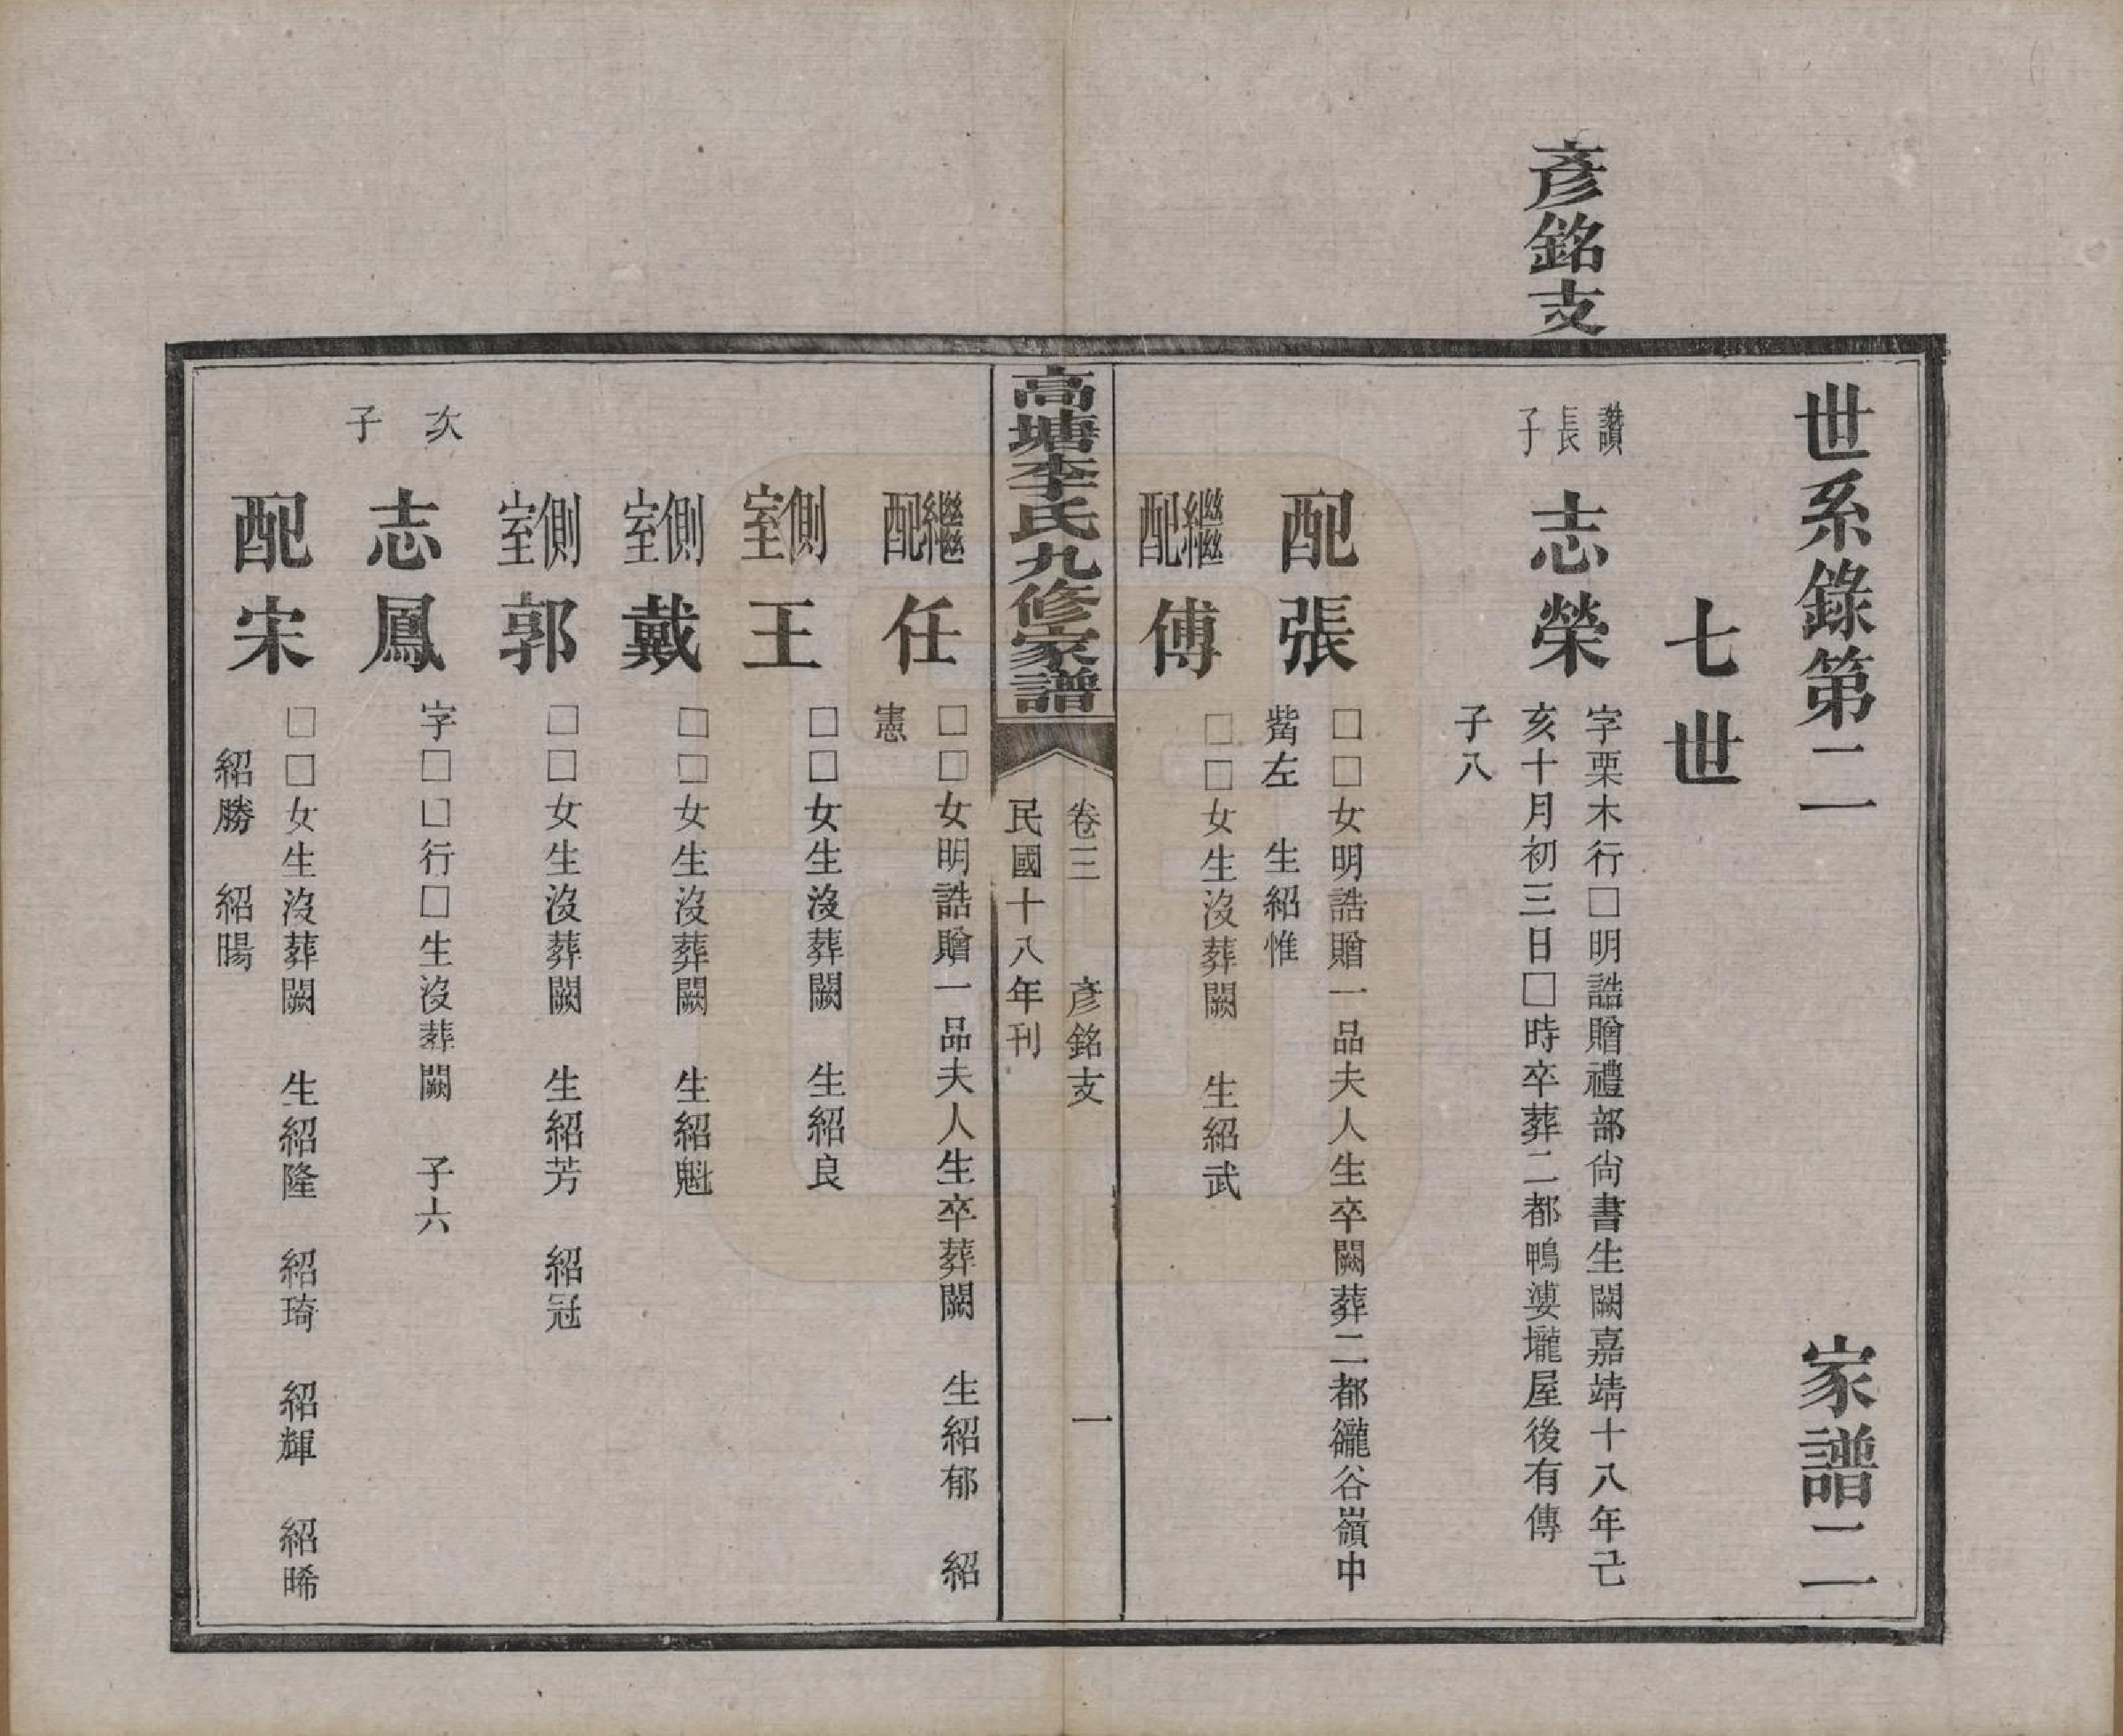 彥銘支
世系錄第二 家譜二
七世
讚長子
志榮
字栗木行□明誥贈禮部尙書生闕嘉靖十八年己
亥十月初三日□時卒葬二都鴨婆壠屋後有傳
子八
配張
□□女明誥贈一品夫人生卒闕葬二都䃧谷嶺中
觜左 生紹惟
繼配傅
□□女生沒葬闕 生紹武
高塘李氏九修家譜
卷三 彥銘支 一
民國十八年刊
繼配任
□□女明誥贈一品夫人生卒葬闕 生紹郁 紹
憲
側室王
□□女生沒葬闕 生紹良
側室戴
□□女生沒葬闕 生紹魁
側室郭
□□女生沒葬闕 生紹芳 紹冠
次子
志鳳
字□□行□生沒葬闕 子六
配宋
□□女生沒葬闕 生紹隆 紹琦 紹輝 紹晞
紹勝 紹暘